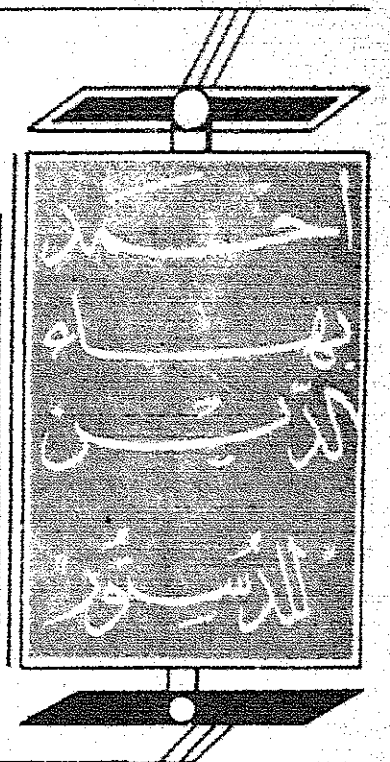 احمد
بهاء
الدين
للدستور